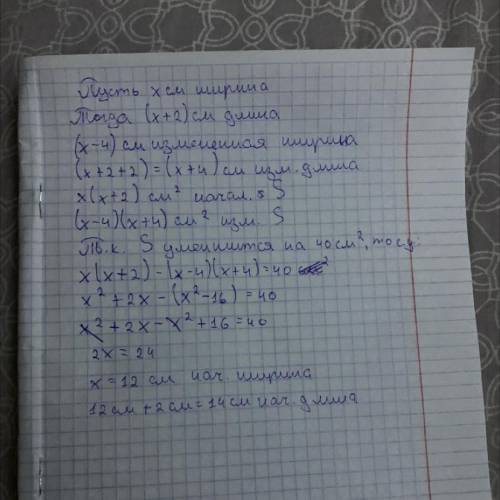 Пусть x см ширина
Тогда (x+2) см длина
(x-4) см измененная ширина
(x+2+2)=(x+4) см изм. длина
x(x+2) см² начал. S
(x-4)(x+4) см² изм. S
Т.к. S уменьшится на 40 см², то
x(x+2)-(x-4)(x+4)=40
x²+2x-(x²-16)=40
x²+2x-x²+16=40
2x=24
x=12 см нач. ширина
12см+2см=14см нач. длина